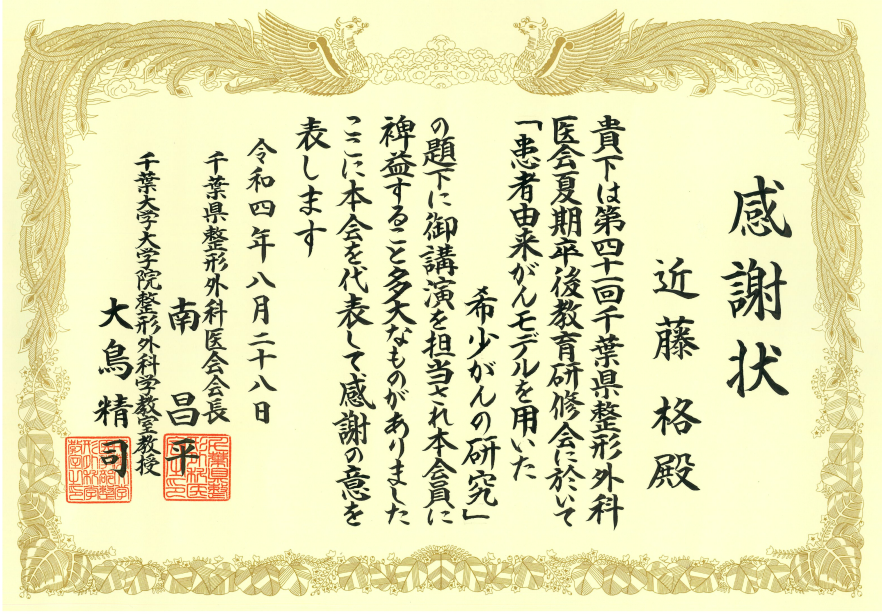 感謝状
近藤格殿
貴下は第四十一回千葉県整形外科
医会夏期卒後教育研修会に於いて
「患者由来がんモデルを用いた
希少がんの研究」
の題下に御講演を担当され本会員に
裨益すること多大なものがありました
ここに本会を代表して感謝の意を
表します
令和四年八月二十八日
千葉県整形外科医会会長
南昌平
千葉大学大学院整形外科学教室教授
大鳥精司